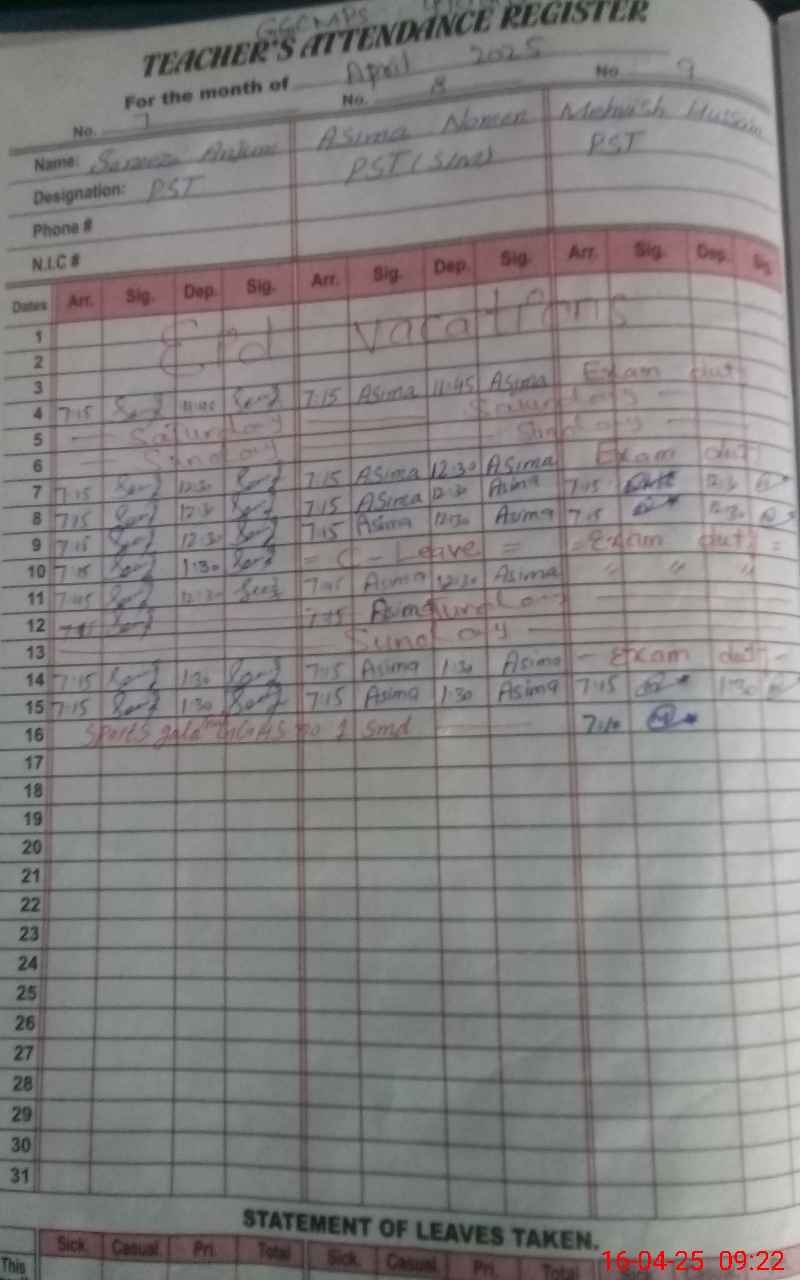 GGCMPS
TEACHER'S ATTENDANCE REGISTER
For the month of April 2025
No. 7 No. 8 No 9
Name: Anjum Asima Noman Mehwish Hussain
Designation: PST PST PST
Phone #
N.I.C #
Dates Arr. Sig. Dep. Sig. Arr. Sig. Dep. Sig. Arr. Sig. Dep. Sig.
1
2 Eid vacations
3
4 7:15 7:15 Asima 11:45 Asima Exam duty
5 Saturday Saturday
6 Sunday Sunday
7 7:15 12:30 7:15 Asima 12:30 Asima Exam duty
8 7:15 12:30 7:15 Asima 12:30 Asima 7:15 12:30
9 7:15 12:30 7:15 Asima 12:30 Asima 7:15 12:30
10 7:15 1:30 = C-Leave = =Exam duty=
11 7:45 12:30 7:45 Asima 12:30 Asima " " "
12 7:15 Asima
13 Sunday
14 7:15 1:30 7:15 Asima 1:30 Asima - Exam duty -
15 7:15 1:30 7:15 Asima 1:30 Asima 7:15 1:30
16 Sports gala no 1 Smd 7:10
17
18
19
20
21
22
23
24
25
26
27
28
29
30
31
STATEMENT OF LEAVES TAKEN.
This Sick. Casual. Pri. Total Sick. Casual. Pri. Total
16-04-25 09:22